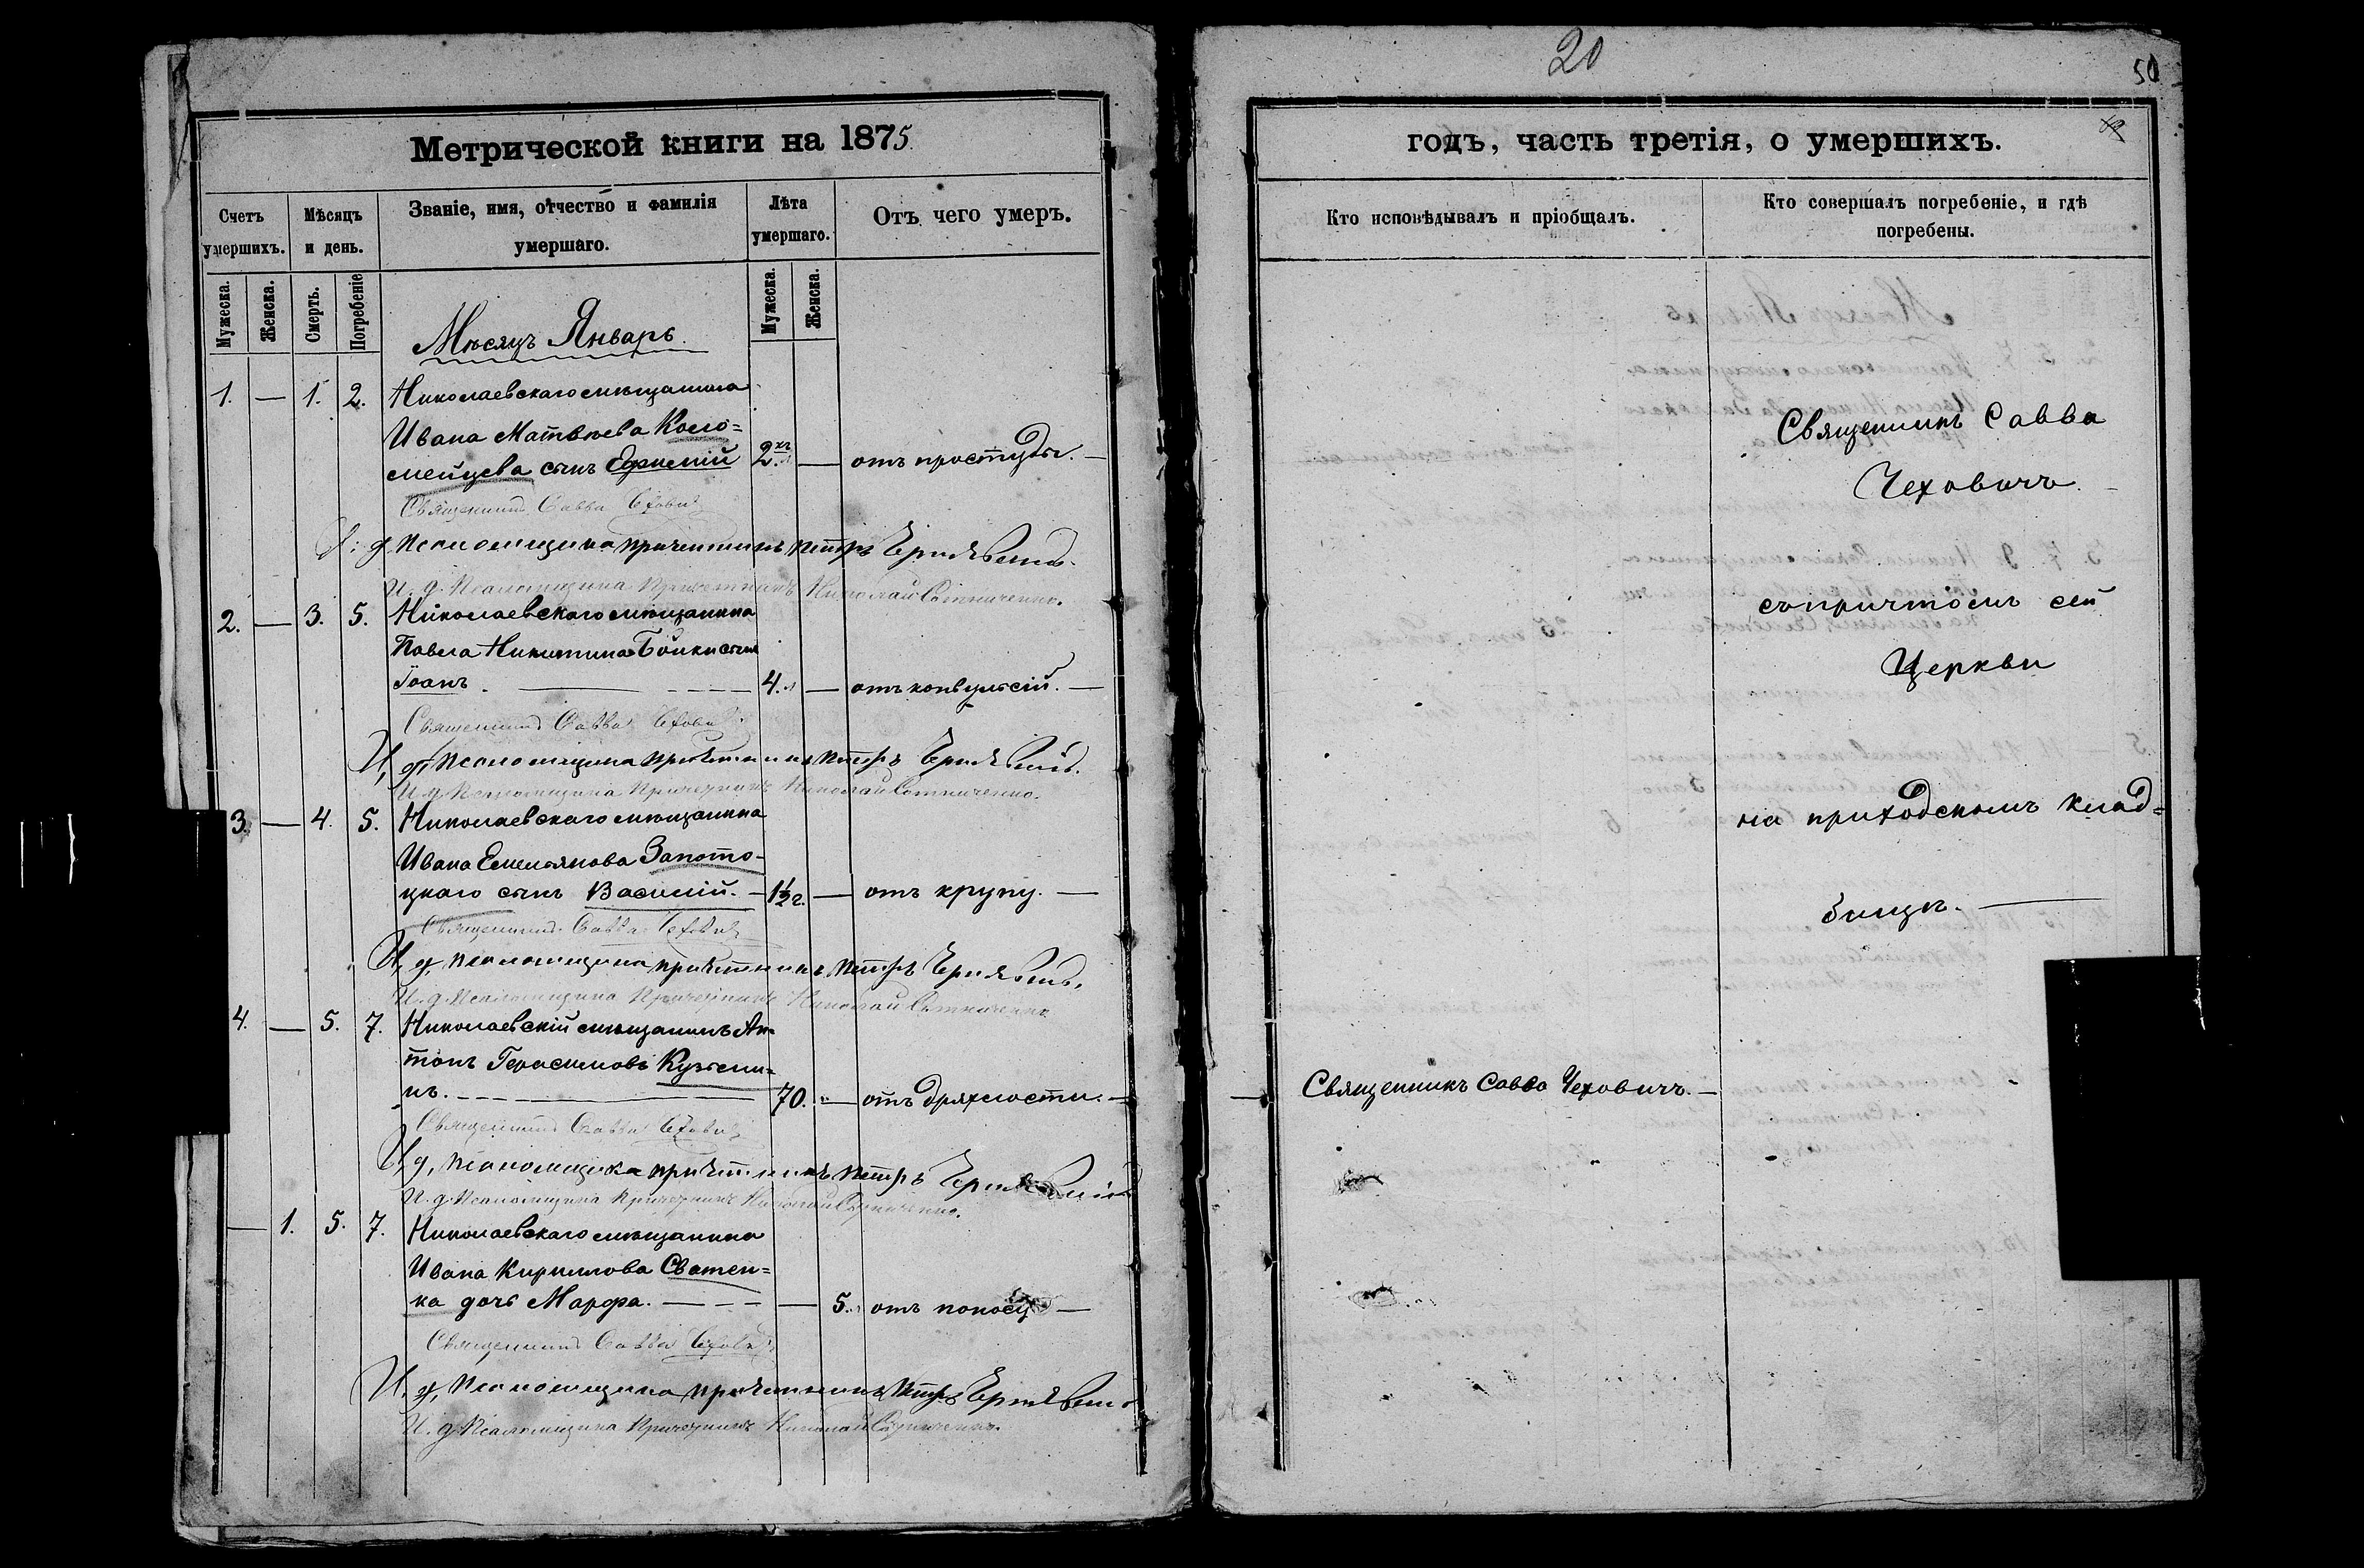 Метрической книги на 1875
Счетъ умершихъ.
Мѣсяцъ и день.
Званіе, имя, отчество и фамилія умершаго.
Лѣта умершаго.
Отъ чего умеръ.
Мужеска.
Женска.
Смерть.
Погребеніе
Мужеска.
Женска.
Мѣсяцъ Январь.
1. — 1. 2. Николаевскаго мѣщанина
Ивана Матвѣева Коло=
мейцева сынъ Ефимій 2 — отъ простуды. —
Священникъ Савва Чехович
д. Псаломщика причетникъ Петръ
И. д. Псаломщика Причетникъ Николай Сотниченко.
2. — 3. 5. Николаевскаго мѣщанина
Павла Никитина Бойки сынъ
Іоанъ. 4. — отъ конвульсій. —
Священникъ Савва Чехович
И, д, Псаломщика причетникъ Петръ
И. д. Псаломщика Причетникъ Николай Сотниченко.
3. — 4. 5. Николаевскаго мѣщанина
Ивана Емельянова Запото-
цкаго сынъ Василій. — 1½ г. — отъ крупу. —
Священникъ Савва Чехович
И, д, Псаломщика причетникъ Петръ
И. д. Псаломщика Причетникъ Николай Сотниченко
4. — 5. 7. Николаевскій мѣщанинъ Ан-
тонъ Герасимовъ Кузьми=
нъ. 70. — отъ дряхлости. —
Священникъ Савва Чехович
И, д, Псаломщика причетникъ Петръ
И. д. Псаломщика Причетникъ Николай Сотниченко.
— 1. 5. 7. Николаевскаго мѣщанина
Ивана Кирилова Сватен=
ка дочь Марфа. — — 5. отъ поносу —
Священникъ Савва Чехович
И, д, Псаломщика причетникъ Петръ
И. д. Псаломщика Причетникъ Николай Сотниченко.
20
50
годъ, часть третія, о умершихъ.
Кто исповѣдывалъ и пріобщалъ.
Кто совершалъ погребеніе, и гдѣ погребены.
Священникъ Савва
Чеховичъ.
съ причтомъ сей
Церкви
на приходскомъ клад=
бищѣ.
Священникъ Савва Чеховичъ. —